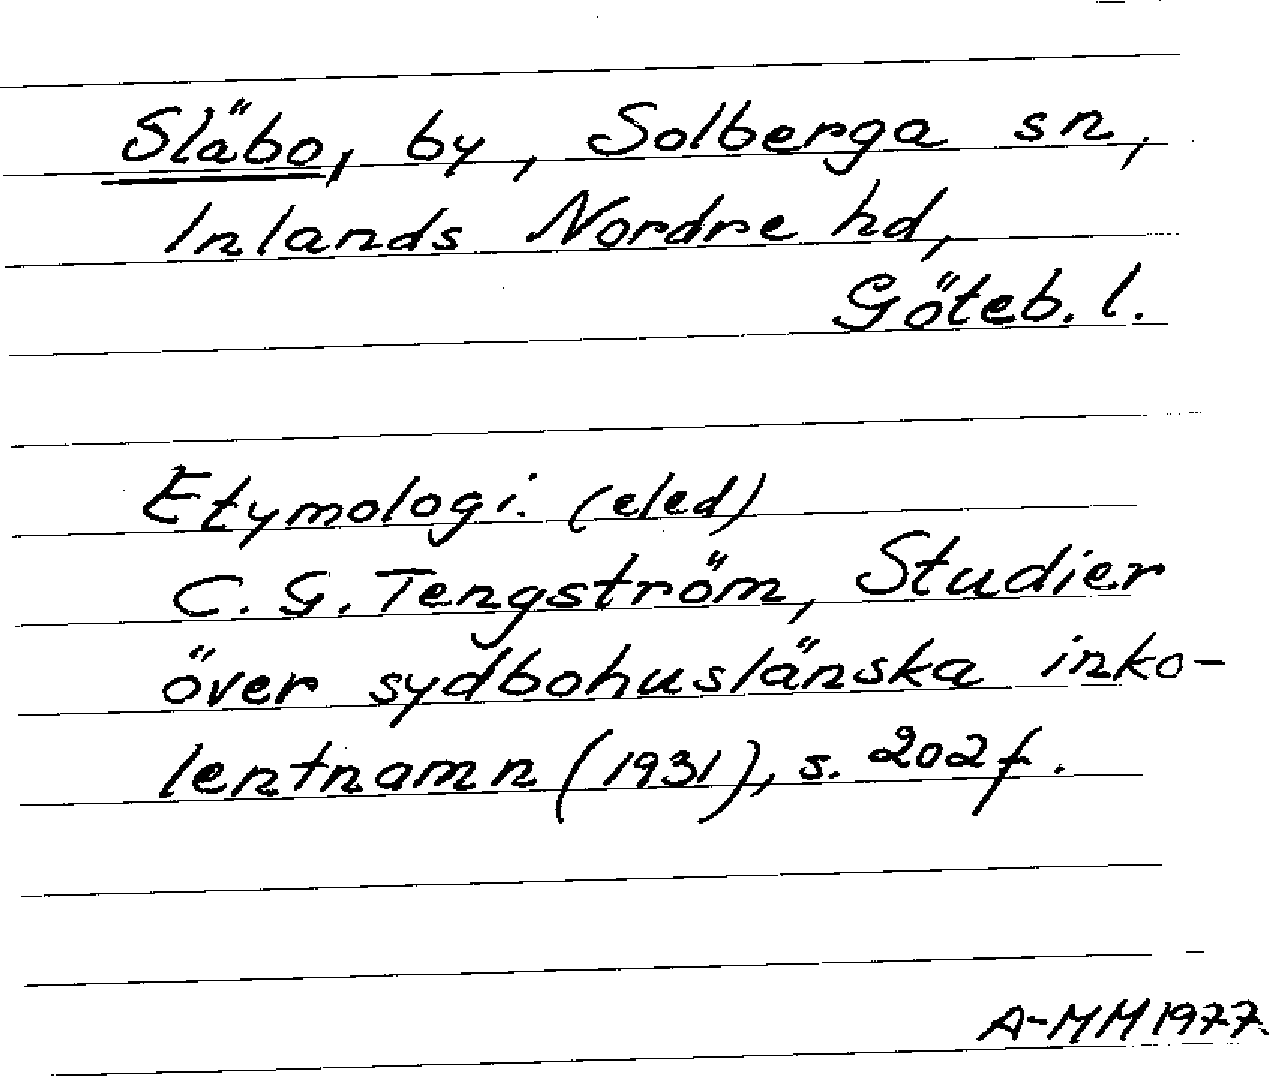 Släbo, by, Solberga sn,
Inlands Nordre hd,
Göteb. l.
Etymologi. (eled)
C. G. Tengström, Studier
över sydbohuslänska inko-
lentnamn (1931), s. 202 f.
A-MM 1977.